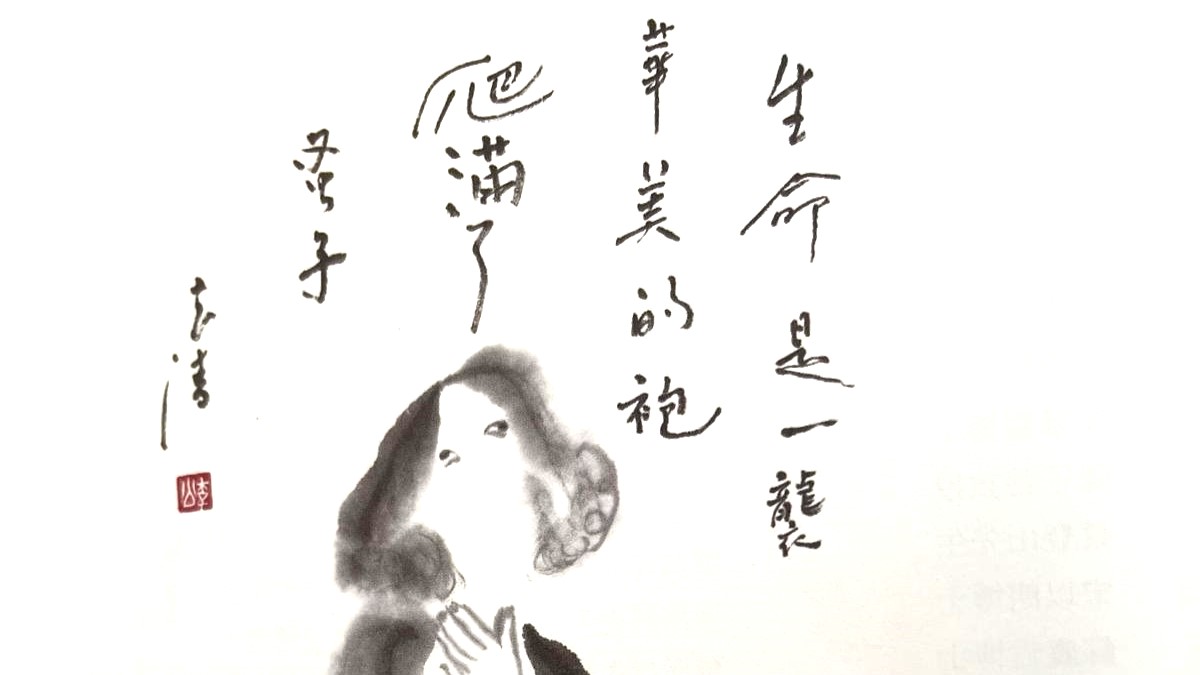 生命是一襲
華美的袍
爬滿了
蚤子
志清